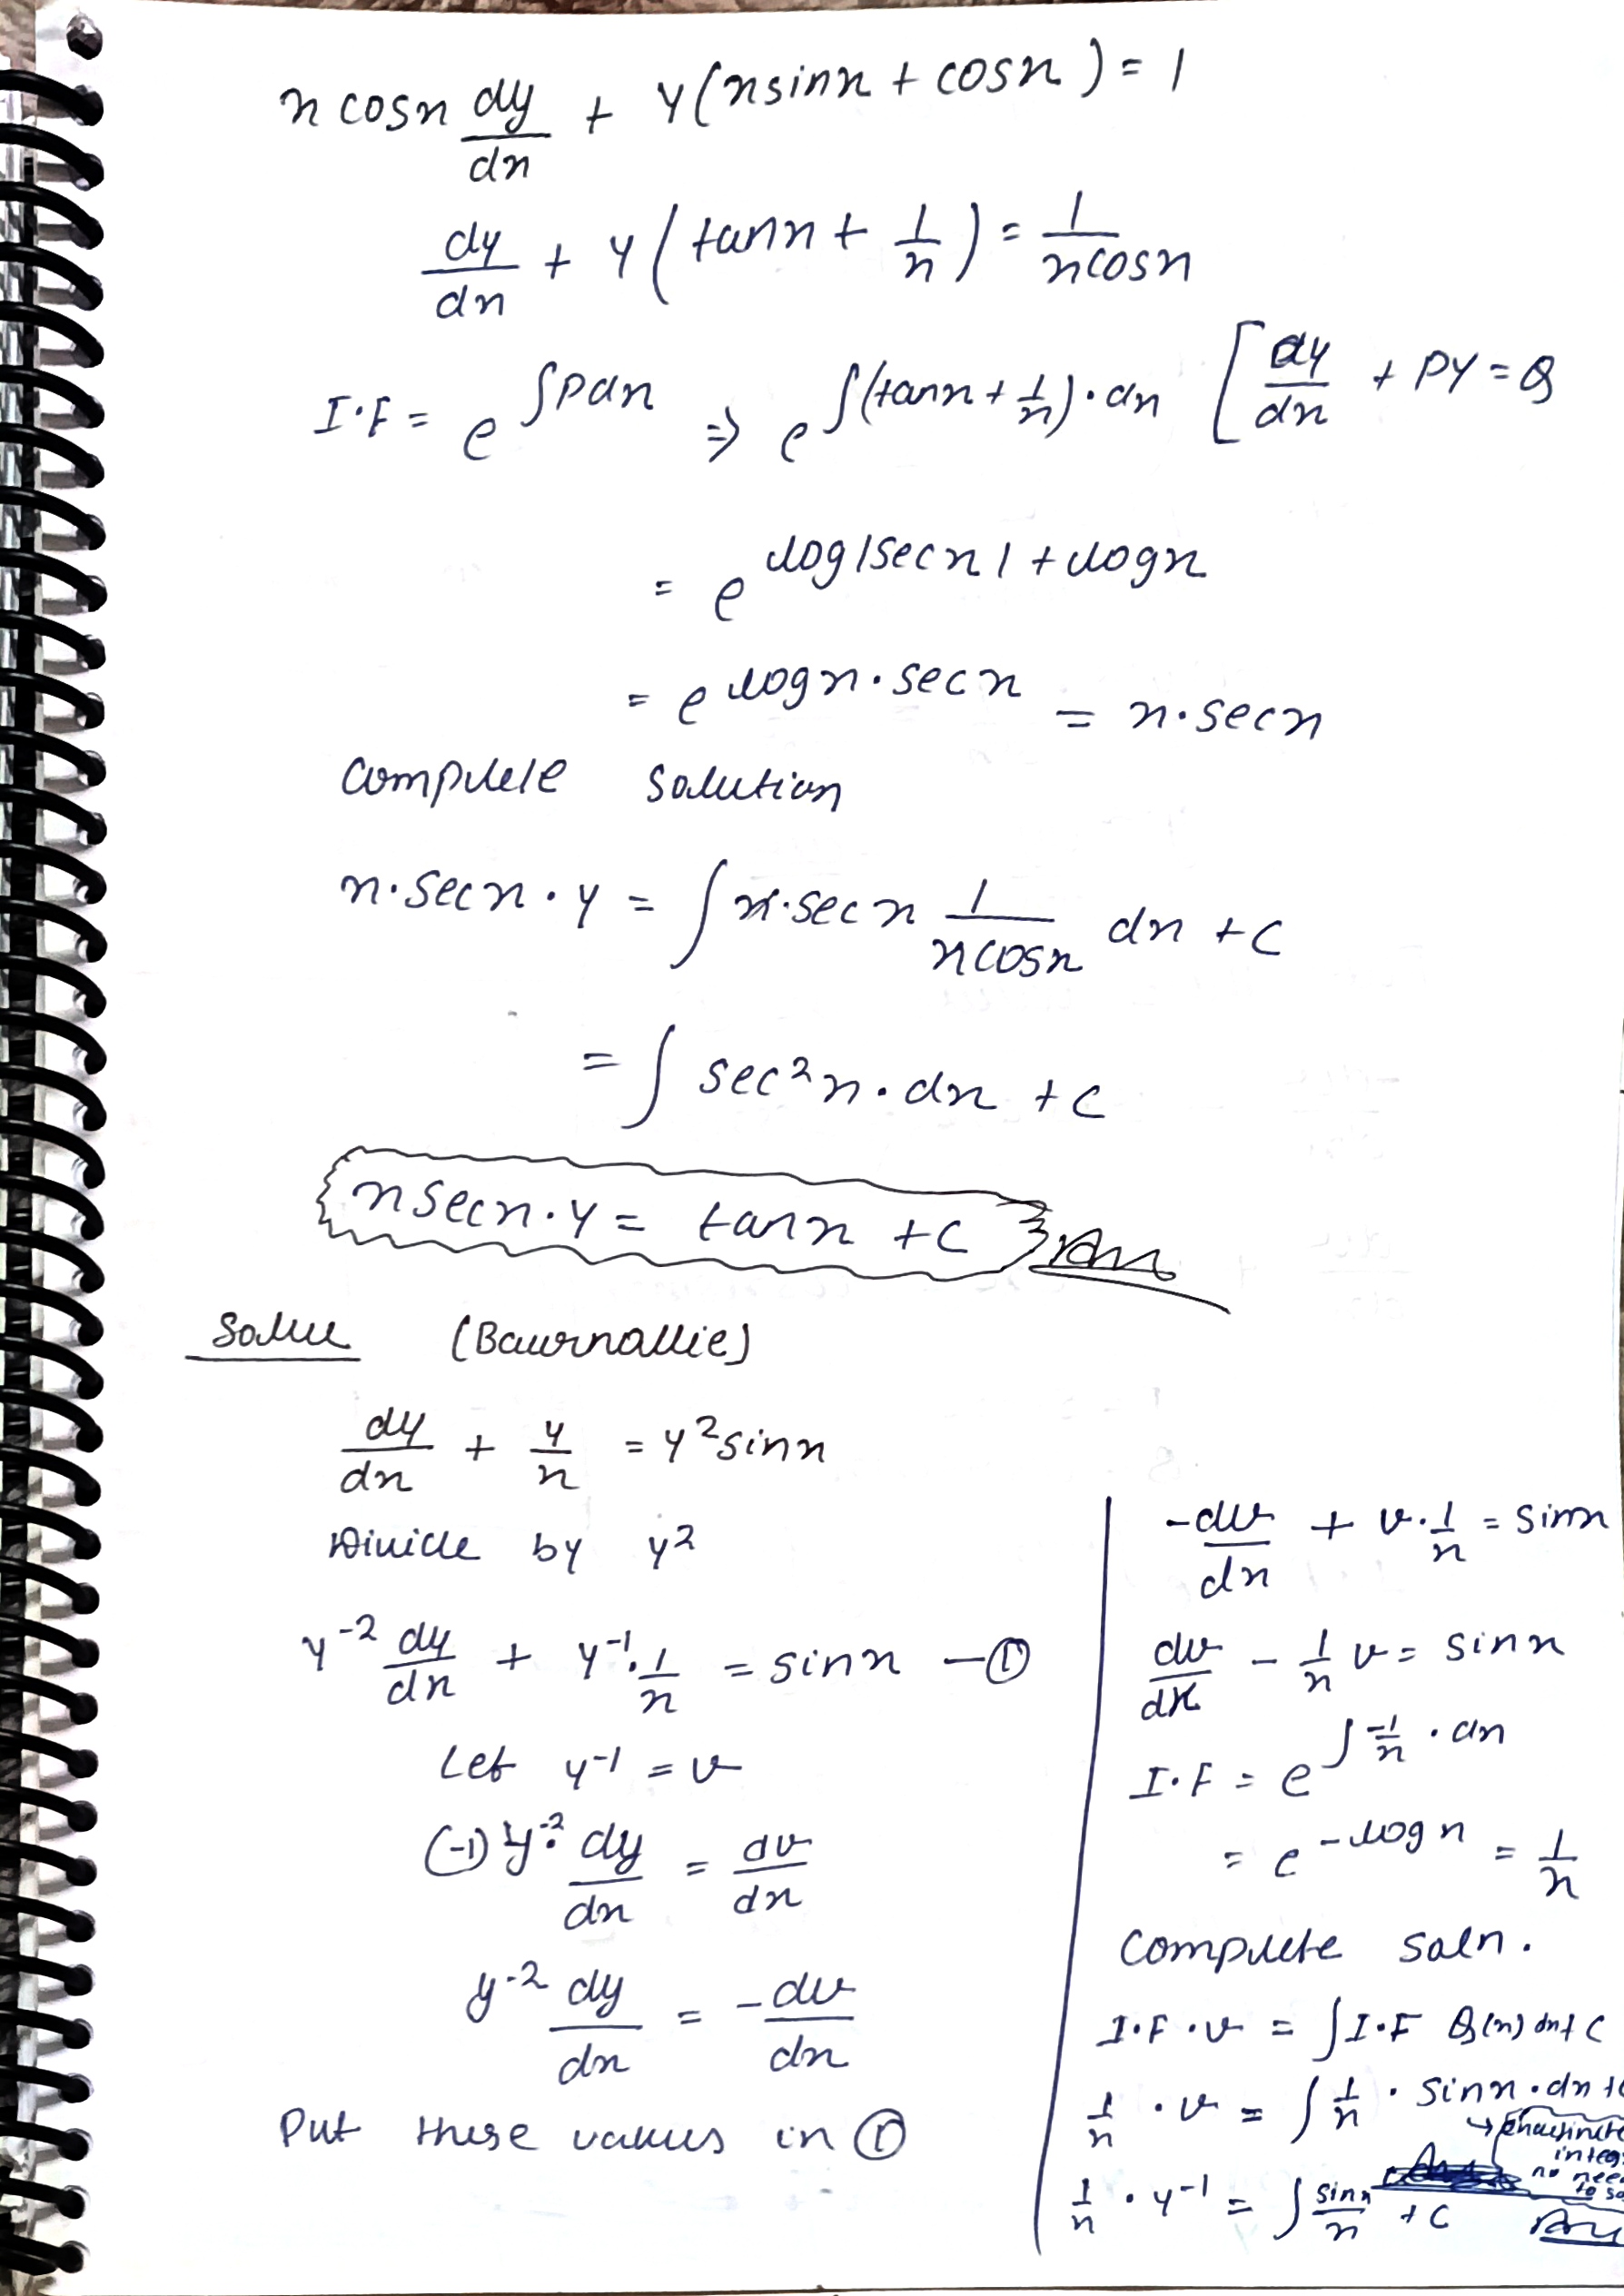 x cosx dy/dx + y(xsinx + cosx) = 1
dy/dx + y(tanx + 1/x) = 1/xcosx
I·F = e^∫Pdx ⇒ e^∫(tanx + 1/x)·dx [dy/dx + Py = Q
= e^log|secx| + logx
= e^logx·secx = x·secx
Complete Solution
x·secx·y = ∫x·secx 1/xcosx dx + C
= ∫sec²x·dx + C
xsecx·y = tanx + C Ans
Solve (Bournallie)
dy/dx + y/x = y²sinx
Divide by y²
y⁻² dy/dx + y⁻¹·1/x = sinx —①
Let y⁻¹ = v
(-1) y⁻² dy/dx = dv/dx
y⁻² dy/dx = -dv/dx
Put these values in ①
-dv/dx + v·1/x = sinx
dv/dx - 1/x v = sinx
I·F = e^∫-1/x·dx
= e^-logx = 1/x
Complete soln.
I·F·v = ∫I·F Q(x) dx + C
1/x·v = ∫1/x·sinx·dx +
integ
no need
to so
1/x·y⁻¹ = ∫sinx/x + C Ans